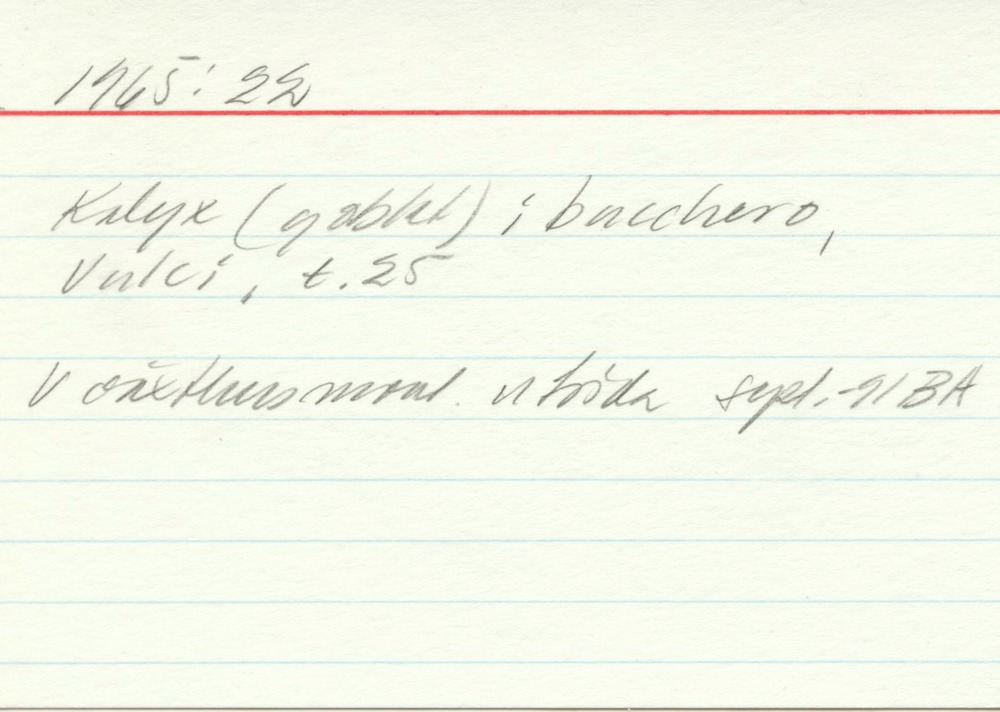 1965:22
Kalyx (goblet) i bucchero,
Vulci, t.25
Växthusmont. utsida sept.-91 BA